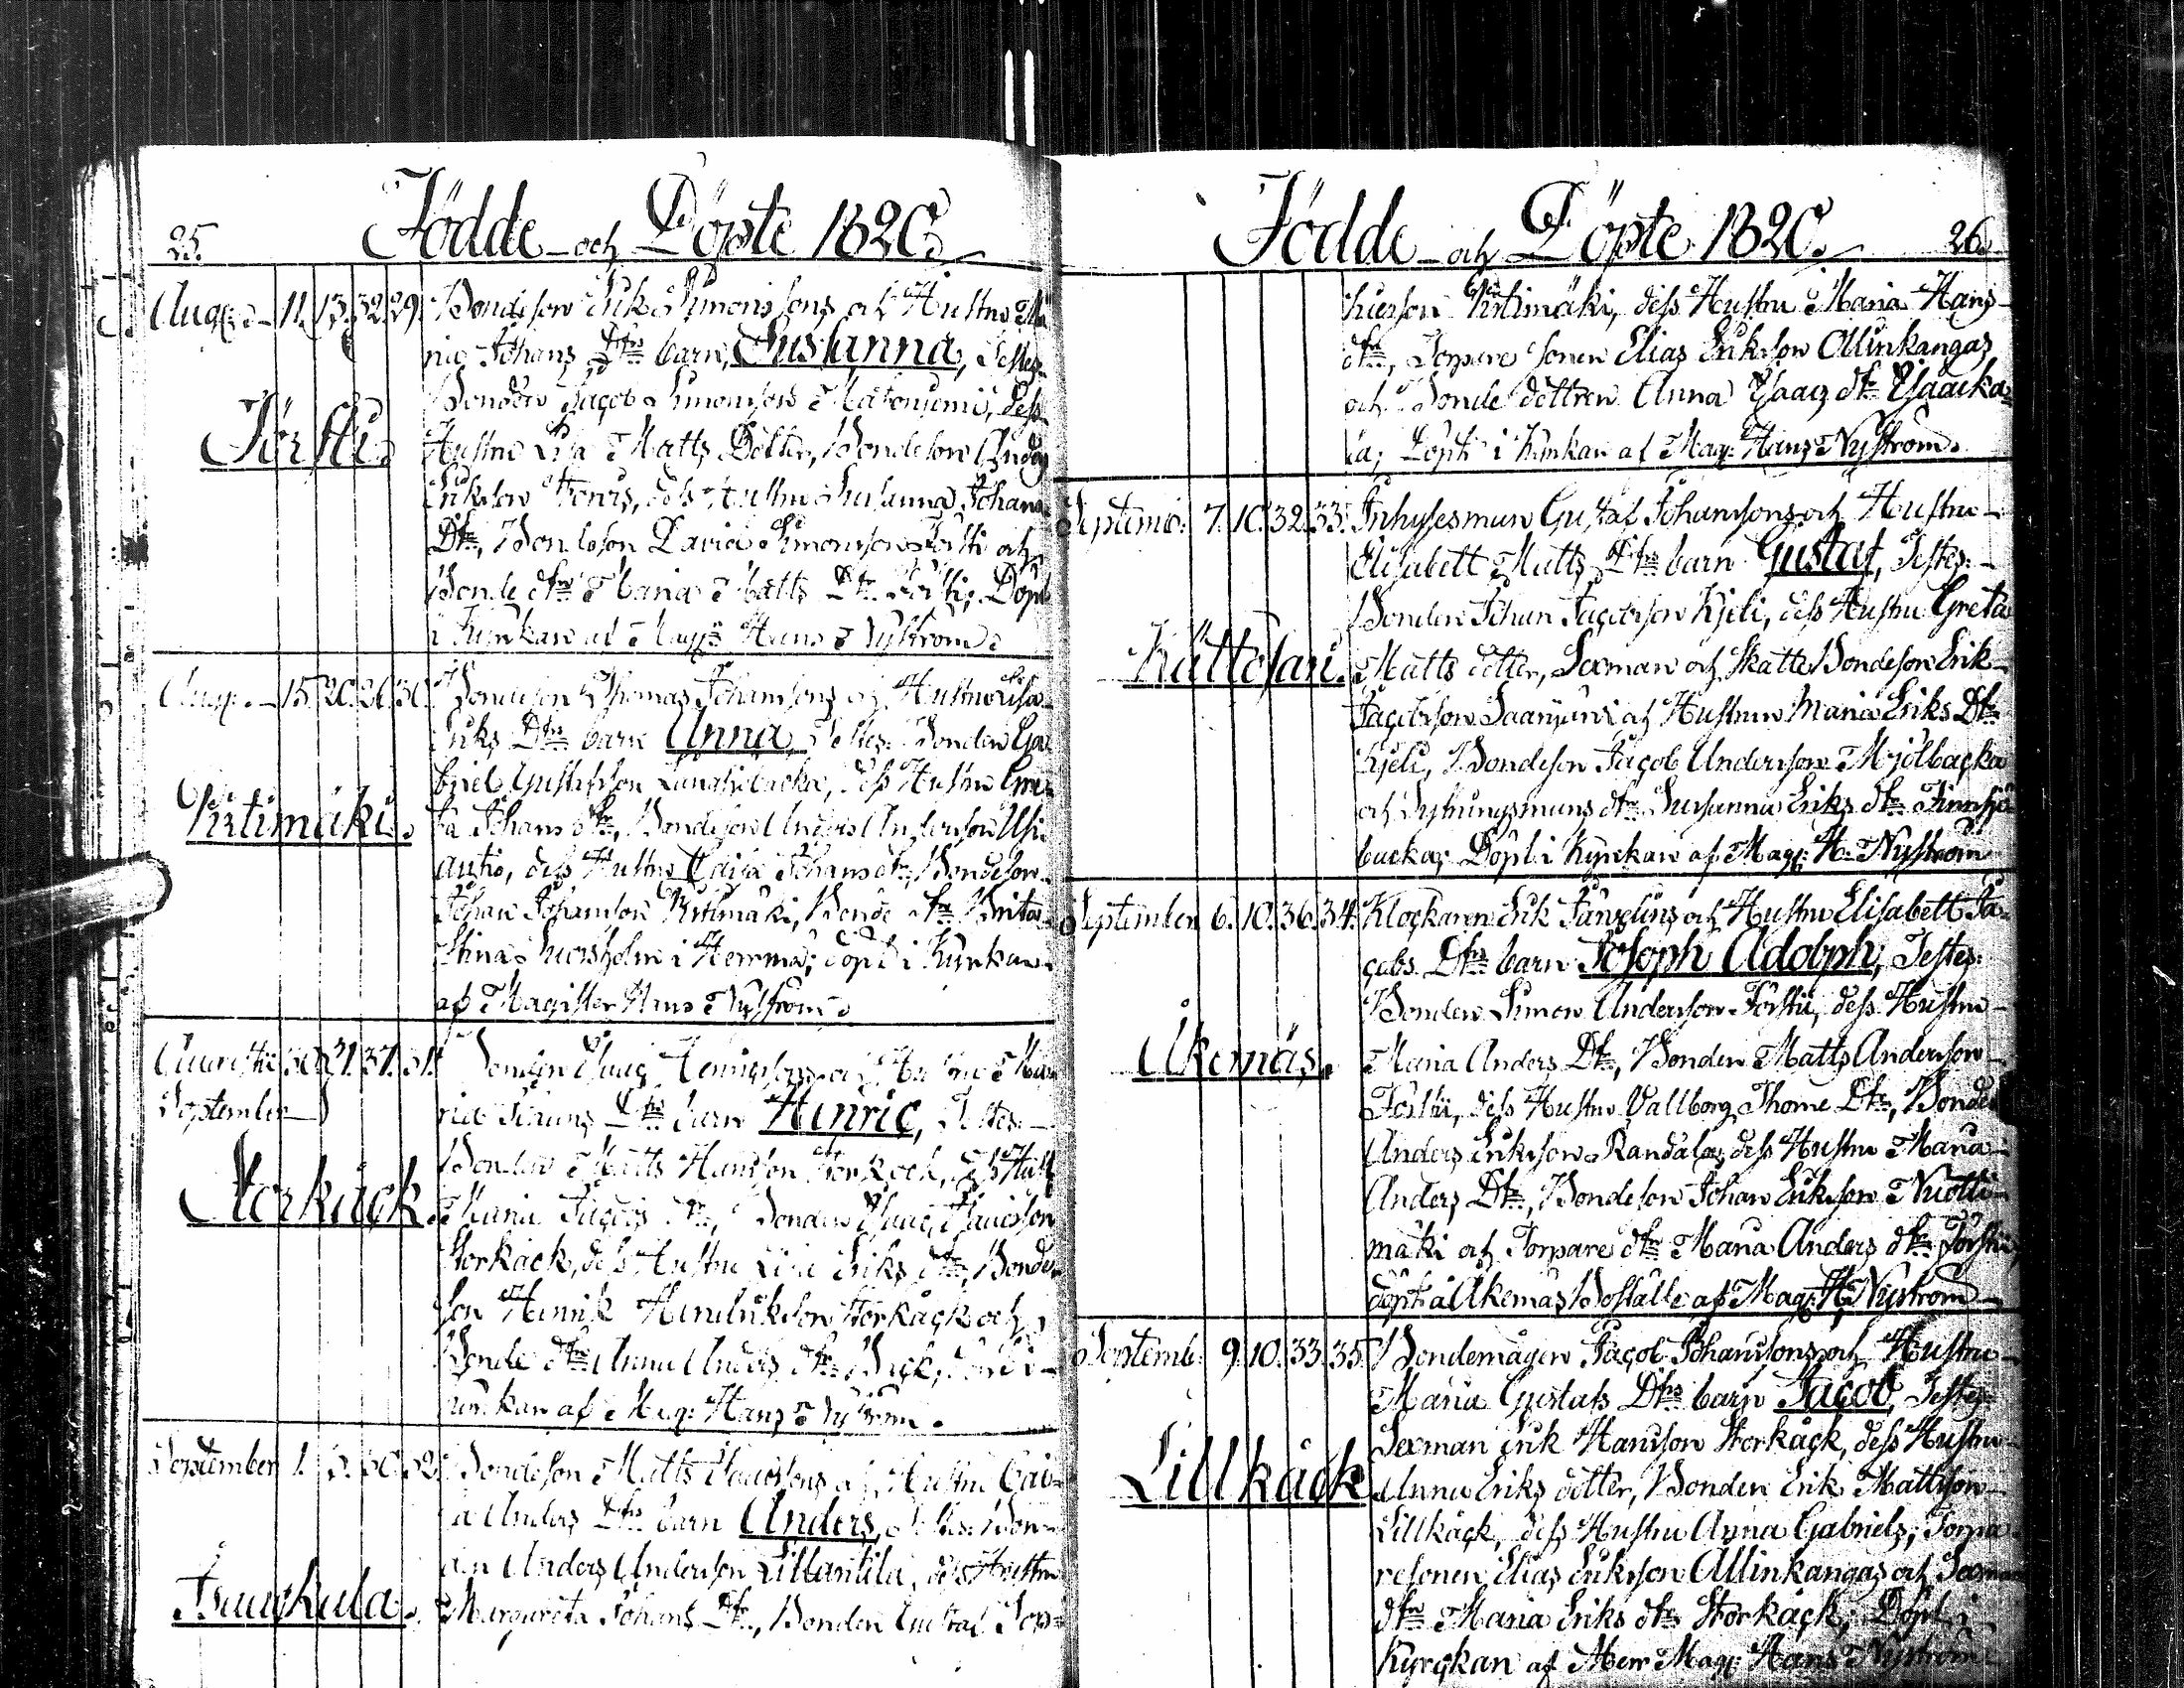 25.
Födde och Döpte 1820.
Aug: 11. 13. 32. 29. Bondeson Erik Simonssons och Hustru Ma
ria Johans Dtrs barn, Susanna, Testes:
Bonden Jacob Simonsson Matoniemi, dess
Försti. Hustru Lisa Matts Dotter, Bondeson Anders
Eriksson Forars, dess Hustru Susanna Johans
Dtr, Bondeson David Simonsson Försti och
Bonde dtr Maria Matts Dtr Försti; Döpt
i Kyrkan af Mag: Hans Nyström.
Aug: 15. 20. 26. 30. Bondeson Thomas Johanssons och Hustru Lisa
Eriks Dtrs barn Anna, Testes: Bonden Ga
briel Gustafsson Långsibacka, dess Hustru Gre
Kirtimäki. ta Johans dtr, Bondeson Anders Andersson Usi
autio, dess Hustru Caisa Johans dtr, Bondeson
Johan Johansson Kirtimäki, Bonde dtr Brita
Stina i Herrmas; döpt i Kyrkan
af Magister Hans Nyström.
Augusti 30. 31. 31. September
Bonden Isaac Henricssons och Hustru Ma
ria Johans Dtrs barn Hinric, Testes:
Bonden Matts Hansson Storkåck, dess Hust
Storkåck. Maria Jacobs dtr, Bonden Isaac Isacsson
Storkåck, dess Hustru Lisa Eriks dtr, Bonde
son Henrik Hendriksson Storkåck och
Bonde dtr Anna Anders dtr Back, Döpt i
Kyrkan af Mag: Hans Nyström.
September 1. 3. 30. 32. Bondeson Matts Isacssons och Hustru Cai
sa Anders Dtrs barn Anders, Testes: Bon
den Anders Andersson Lillantila, dess Hustru
Isackula. Margareta Johans Dtr, Bonden Gustaf
Födde och Döpte 1820. 26.
Kirtimäki, dess Hustru Maria Hans
dtr, Torpare sonen Elias Eriksson Allinkangas
och Bonde dottren Anna Isaacs dtr Isaacka
la; Döpt i Kyrkan af Mag: Hans Nyström.
Septemb: 7. 10. 32. 33. Inhysesman Gustaf Johanssons och Hustru
Elisabett Matts Dtrs barn Gustaf, Testes:
Bonden Johan Jacobsson Kjeli, dess Hustru Greta
Kåttosari. Matts dotter, Sexman och Skatte Bondeson Erik
Jacobsson Saarijärvi och Hustrun Maria Eriks Dtr
Kjeli, Bondeson Jacob Andersson Mjölbacka
och Sytningsmans dtr Susanna Eriks dtr Finnsjö
backa; Döpt i Kyrckan af Mag: H: Nyström
September 6. 10. 36. 34. Klockaren Erik Järvelins och Hustru Elisabett Ja
cobs Dtrs barn Joseph Adolph, Testes:
Bonden Simon Andersson Försti, dess Hustru
Åkernäs. Maria Anders Dtr, Bonden Matts Andersson
Försti, dess Hustru Vallborg Thome Dtr, Bonden
Anders Eriksson Randala, dess Hustru Maria
Anders Dtr, Bondeson Johan Eriksson Nuotti
mäki och Torpare dtr Maria Anders dtr Försti;
döpt å Åkernäs Boställe af Mag: H: Nyström
Septemb: 9. 10. 33. 35. Bondemågen Jacob Johanssons och Hustru
Maria Gustafs Dtrs barn Jacob, Testes:
Sexman Erik Hansson Storkåck, dess Hustru
Lillkåck Anna Eriks dotter, Bonden Erik Mattsson
Lillkåck, dess Hustru Anna Gabriels, Torpa
resonen Elias Eriksson Allinkangas och Sexmans
dtr Maria Eriks dtr Storkåck; Döpt i
Kyrckan af Herr Mag: Hans Nyström